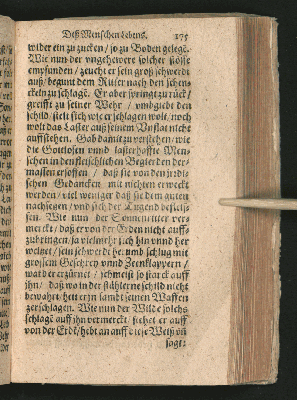 Deß Menschen Lebens. 175
wider ein zu zucken / so zu Boden gelegt.
Wie nun der ungehewre solcher stösse
empfunden / zeucht er sein groß schwerdt
auß / begunt dem Ritter nach den schen-
ckeln zu schlagē. Er aber springt zu rück /
greifft zu seiner Wehr / umbgiebt den
schild / stelt sich wie er schlagen wolt, noch
wolt das Laster auß seinem Unflat nicht
auffstehen. Gab damit zu verstehen / wie
die Gottlosen vnd lasterhaffte Men-
schen in den fleischlichen Begierden der-
massen ersoffen / daß sie von den irdi-
schen Gedancken mit nichten erweckt
werden / viel weniger daß sie dem guten
nachjegen / vnd sich der Tugend befleiss-
sen. Wie nun der Sonnenritter ver-
merckt / daß er von der Erden nicht auff-
zubringen / ja vielmehr sich hin vnnd her
weltzet / sein schwerdt herumb schlug mit
grossem Geschrey vnnd Zeenklappern /
ward er erzürnet / schmeist so starck auff
ihn / daß wa in der stählerne schild nicht
bewahrt hett er jn sambt seinen Waffen
zerschlagen. Wie nun der Wilde solchs
schlagē auff ihn vermerckt / stehet er auff
von der Erdt / hebt an auff diese Weiß vñ
sagt: